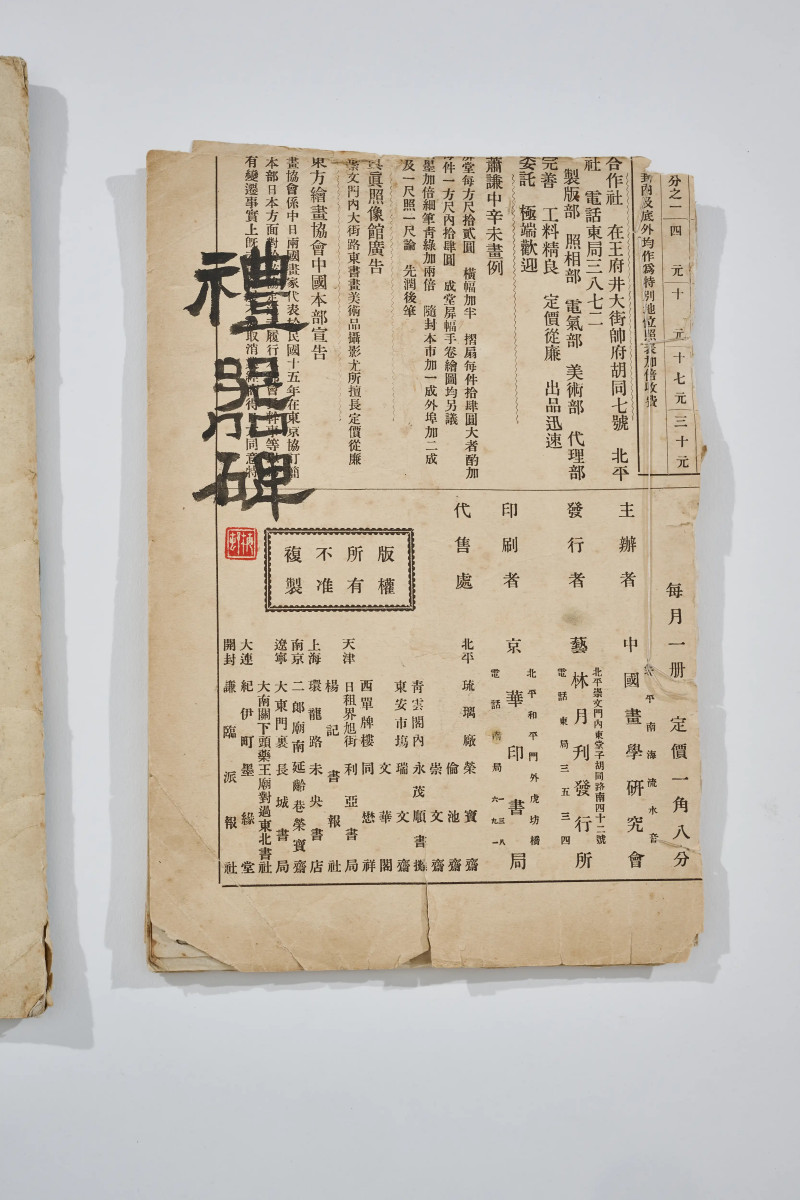 分之一 四元 十元 十七元 三十元
封內及底外均作爲特別地位照表加倍收費
合作社 在王府井大街帥府胡同七號 北平
社 電話東局三八七二
製版部 照相部 電氣部 美術部 代理部
完善 工料精良 定價從廉 出品迅速
委託 極端歡迎
蕭謙中辛未畫例
堂每方尺拾貳圓 橫幅加半 摺扇每件拾肆圓大者酌加
件一方尺內拾肆圓 成堂屏幅手卷繪圖均另議
墨加倍細筆靑綠加兩倍 隨封本市加一成外埠加二成
及一尺照一尺論 先潤後筆
眞照像館廣告
崇文門內大街路東書畫美術品攝影尤所擅長定價從廉
東方繪畫協會中國本部宣告
畫協會係中日兩國畫家代表於民國十五年在東京協訂簡
本部日本方面對 履行 會 等
有變遷事實上旣 取消 得 同意特
禮器碑
每月一册 定價一角八分
主辦者 中國畫學研究會
平南海流水音
發行者 藝林月刊發行所
北平崇文門內東堂子胡同路南四十二號
電話東局三五三四
印刷者 京華印書局
北平和平門外虎坊橋
電話南局 一三八 六九一
代售處
北平 琉璃廠 榮寶齋
倫池齋
崇文齋
靑雲閣內 永茂順書攤
東安市塲 瑞文齋
文華閣
西單牌樓 同懋祥
天津 日租界旭街 利亞書局
楊記書報社
上海 環龍路 未央書店
南京 二郎廟南延齡巷榮寶齋
遼寧 大東門裏 長城書局
大南關下頭藥王廟對過東北書社
大連 紀伊町 墨緣堂
開封 謙臨派報社
版權所有
不准複製